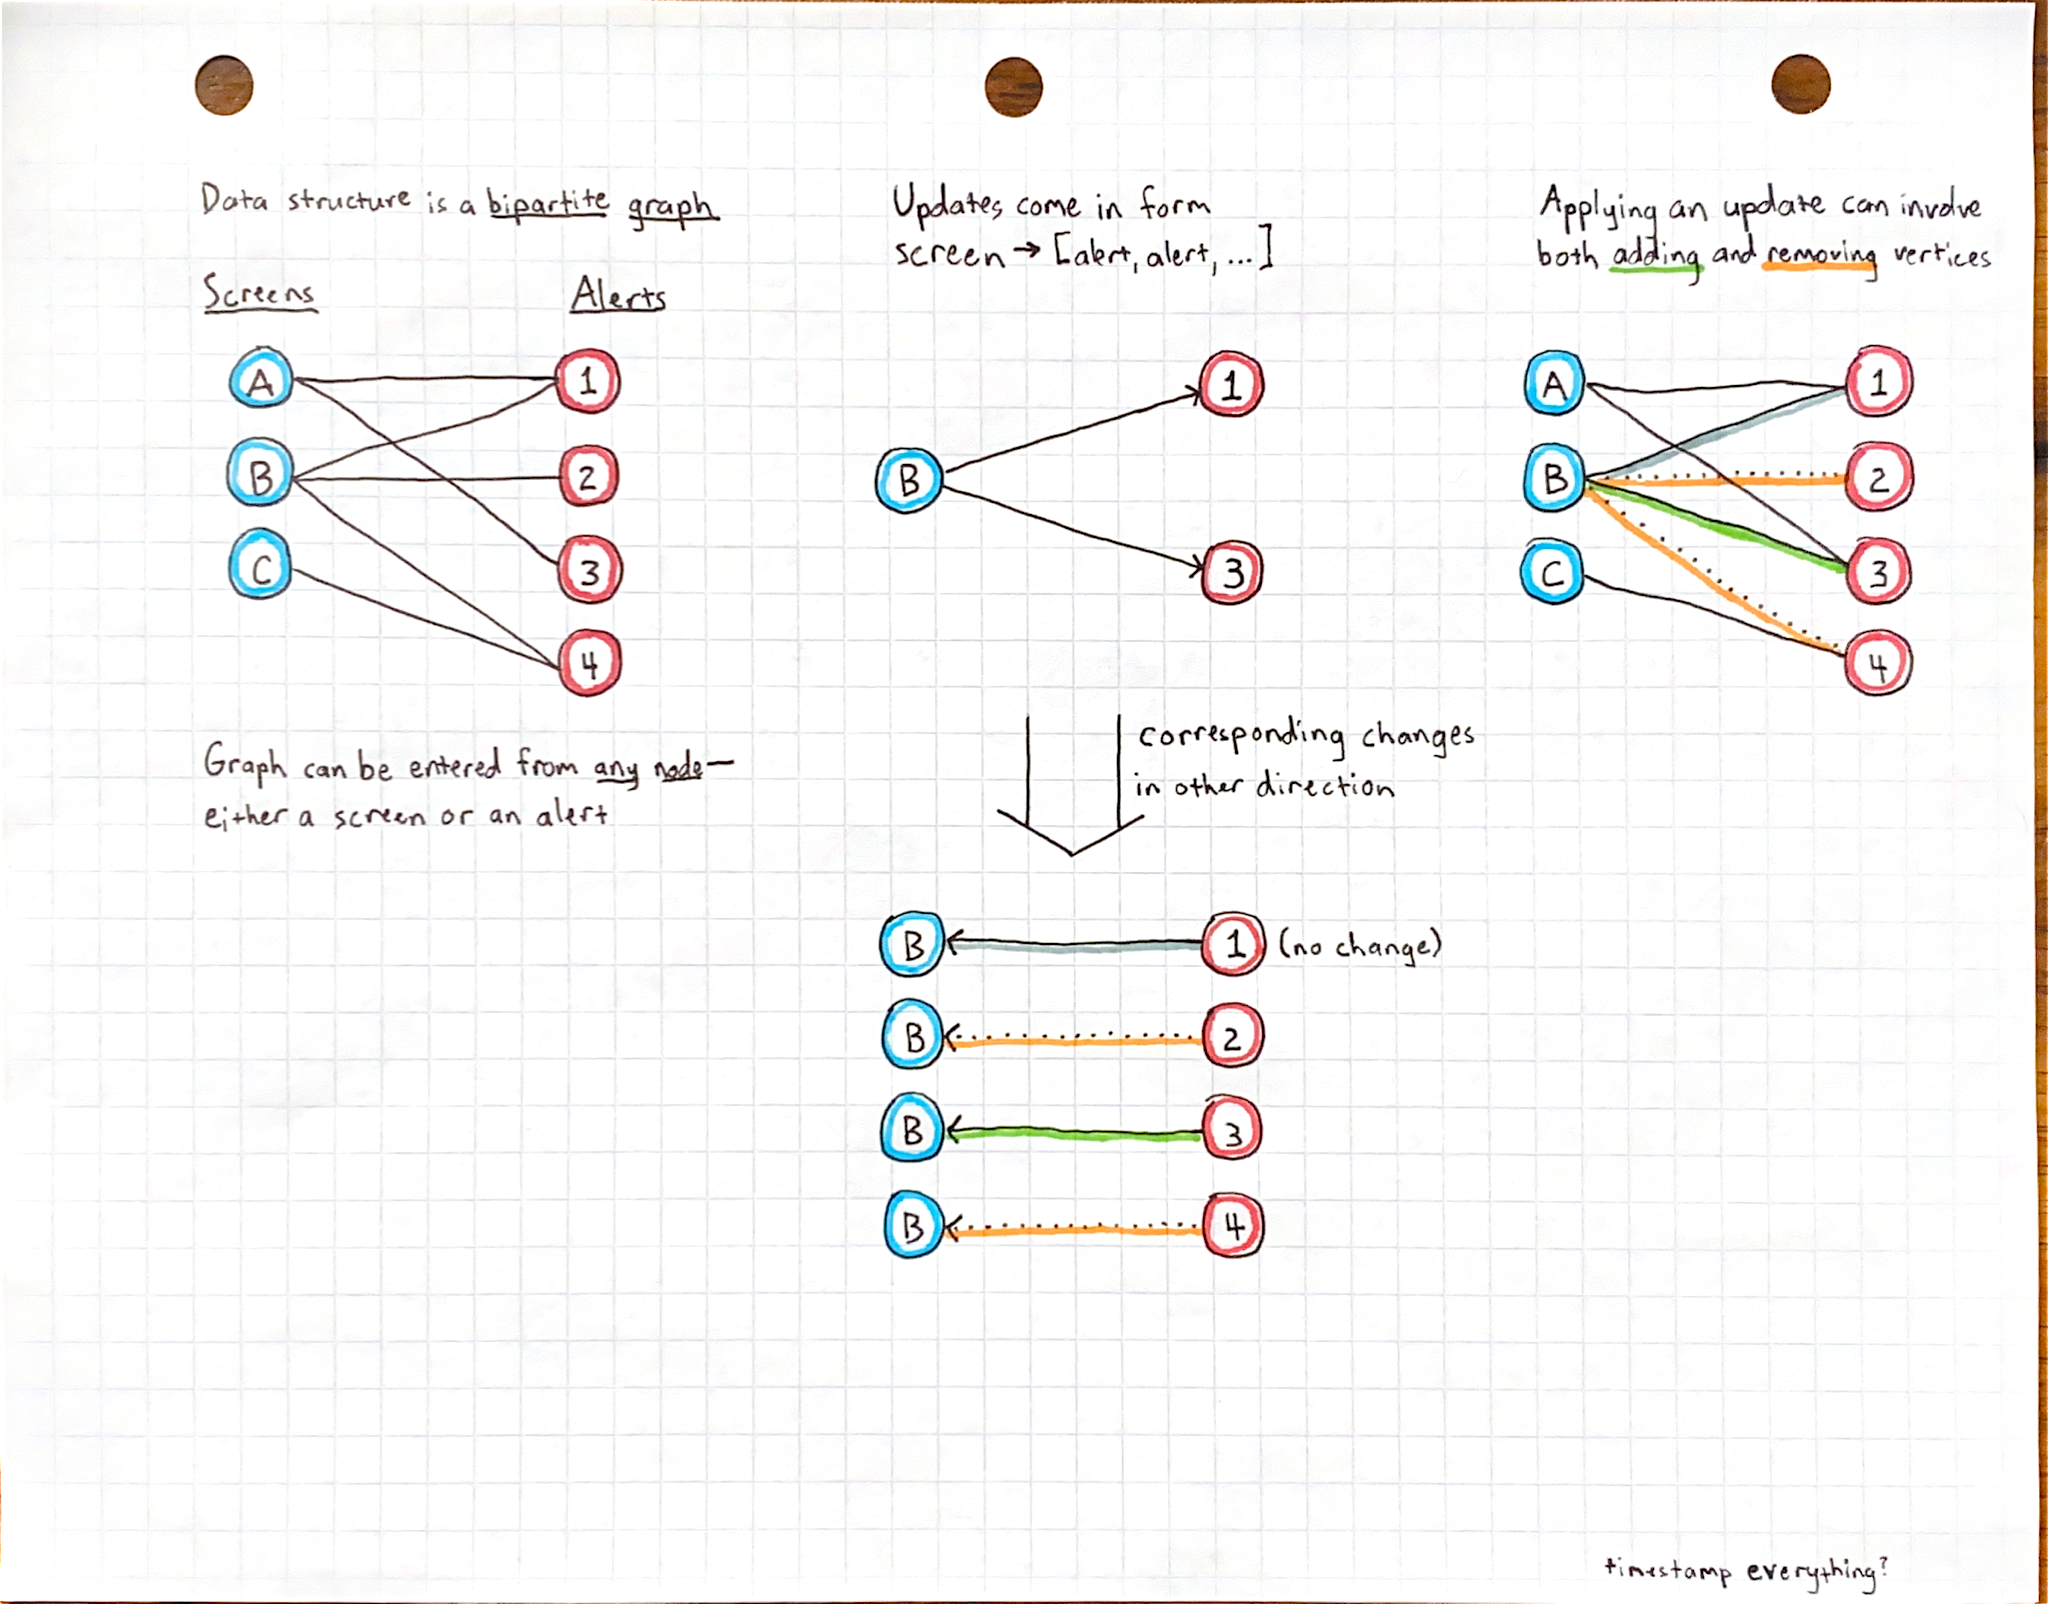 Data structure is a bipartite graph
Screens
Alerts
A
B
C
1
2
3
4
Graph can be entered from any node—
either a screen or an alert
Updates come in form
screen → [alert, alert, ...]
B
1
3
corresponding changes
in other direction
B 1 (no change)
B 2
B 3
B 4
Applying an update can involve
both adding and removing vertices
A
B
C
1
2
3
4
timestamp everything?